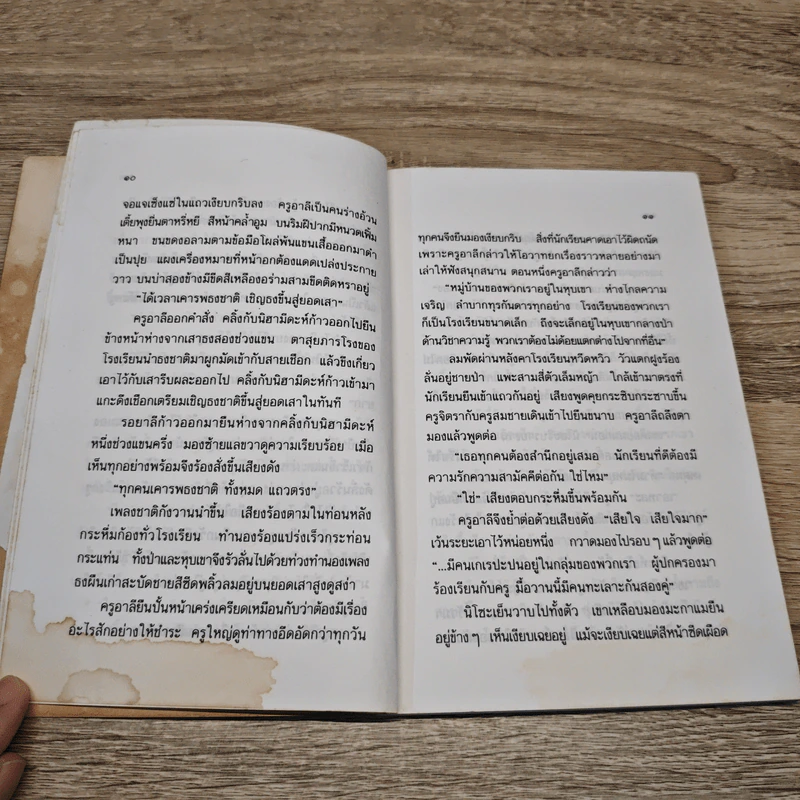 ๑๐
จอแจเซ็งแซ่ในแถวเงียบกริบลง ครูอาลีเป็นคนร่างอ้วน
เตี้ยพุงยื่นตาหรี่หยี สีหน้าคล้ำอูม บนริมฝีปากมีหนวดเพิ่ม
หนา ขนขดงอลามตามข้อมือโผล่พ้นแขนเสื้อออกมาดำ
เป็นปุย แผงเครื่องหมายที่หน้าอกต้องแดดเปล่งประกาย
วาว บนบ่าสองข้างมีขีดสีเหลืองอร่ามสามขีดติดหราอยู่
“ได้เวลาเคารพธงชาติ เชิญธงขึ้นสู่ยอดเสา”
ครูอาลีออกคำสั่ง คลิ้งกับนิฮามีดะห์ก้าวออกไปยืน
ข้างหน้าห่างจากเสาธงสองช่วงแขน ตาสุยภารโรงของ
โรงเรียนนำธงชาติมาผูกมัดเข้ากับสายเชือก แล้วขึงเกี่ยว
เอาไว้กับเสารีบผละออกไป คลิ้งกับนิฮามีดะห์ก้าวเข้ามา
แกะดึงเชือกเตรียมเชิญธงชาติขึ้นสู่ยอดเสาในทันที
รอยาลีก้าวออกมายืนห่างจากคลิ้งกับนิฮามีดะห์
หนึ่งช่วงแขนครึ่ง มองซ้ายแลขวาดูความเรียบร้อย เมื่อ
เห็นทุกอย่างพร้อมจึงร้องสั่งขึ้นเสียงดัง
“ทุกคนเคารพธงชาติ ทั้งหมด แถวตรง”
เพลงชาติกังวานนำขึ้น เสียงร้องตามในท่อนหลัง
กระหึ่มก้องทั่วโรงเรียน ทำนองร้องแปร่งเร็วกระท่อน
กระแท่น ทั้งป่าและหุบเขาจึงรัวลั่นไปด้วยท่วงทำนองเพลง
ธงผืนเก่าสะบัดชายสีซีดพลิ้วลมอยู่บนยอดเสาสูงดูสง่า
ครูอาลียืนปั้นหน้าเคร่งเครียดเหมือนกับว่าต้องมีเรื่อง
อะไรสักอย่างให้ชำระ ครูใหญ่ดูท่าทางอึดอัดกว่าทุกวัน
๑๑
ทุกคนจึงยืนมองเงียบกริบ สิ่งที่นักเรียนคาดเอาไว้ผิดถนัด
เพราะครูอาลีกล่าวให้โอวาทยกเรื่องราวหลายอย่างมา
เล่าให้ฟังสนุกสนาน ตอนหนึ่งครูอาลีกล่าวว่า
“หมู่บ้านของพวกเราอยู่ในหุบเขา ห่างไกลความ
เจริญ ลำบากทุรกันดารทุกอย่าง โรงเรียนของพวกเรา
ก็เป็นโรงเรียนขนาดเล็ก ถึงจะเล็กอยู่ในหุบเขากลางป่า
ด้านวิชาความรู้ พวกเราต้องไม่ด้อยแตกต่างไปจากที่อื่น”
ลมพัดผ่านหลังคาโรงเรียนหวีดหวิว วัวแตกฝูงร้อง
ลั่นอยู่ชายป่า แพะสามสี่ตัวเล็มหญ้า ใกล้เข้ามาตรงที่
นักเรียนยืนเข้าแถวกันอยู่ เสียงพูดคุยกระซิบกระซาบขึ้น
ครูจิตรากับครูสมชายเดินเข้าไปยืนขนาบ ครูอาลีถลึงตา
มองแล้วพูดต่อ
“เธอทุกคนต้องสำนึกอยู่เสมอ นักเรียนที่ดีต้องมี
ความรักความสามัคคีต่อกัน ใช่ไหม”
“ใช่” เสียงตอบกระหึ่มขึ้นพร้อมกัน
ครูอาลีจึงย้ำต่อด้วยเสียงดัง “เสียใจ เสียใจมาก”
เว้นระยะเอาไว้หน่อยหนึ่ง กวาดมองไปรอบๆ แล้วพูดต่อ
“...มีคนเกเรปะปนอยู่ในกลุ่มของพวกเรา ผู้ปกครองมา
ร้องเรียนกับครู มื้อวานนี้มีคนทะเลาะกันสองคู่”
นิโซะเย็นวาบไปทั้งตัว เขาเหลือบมองมะกาแมยืน
อยู่ข้างๆ เห็นเงียบเฉยอยู่ แม้จะเงียบเฉยแต่สีหน้าซีดเผือด